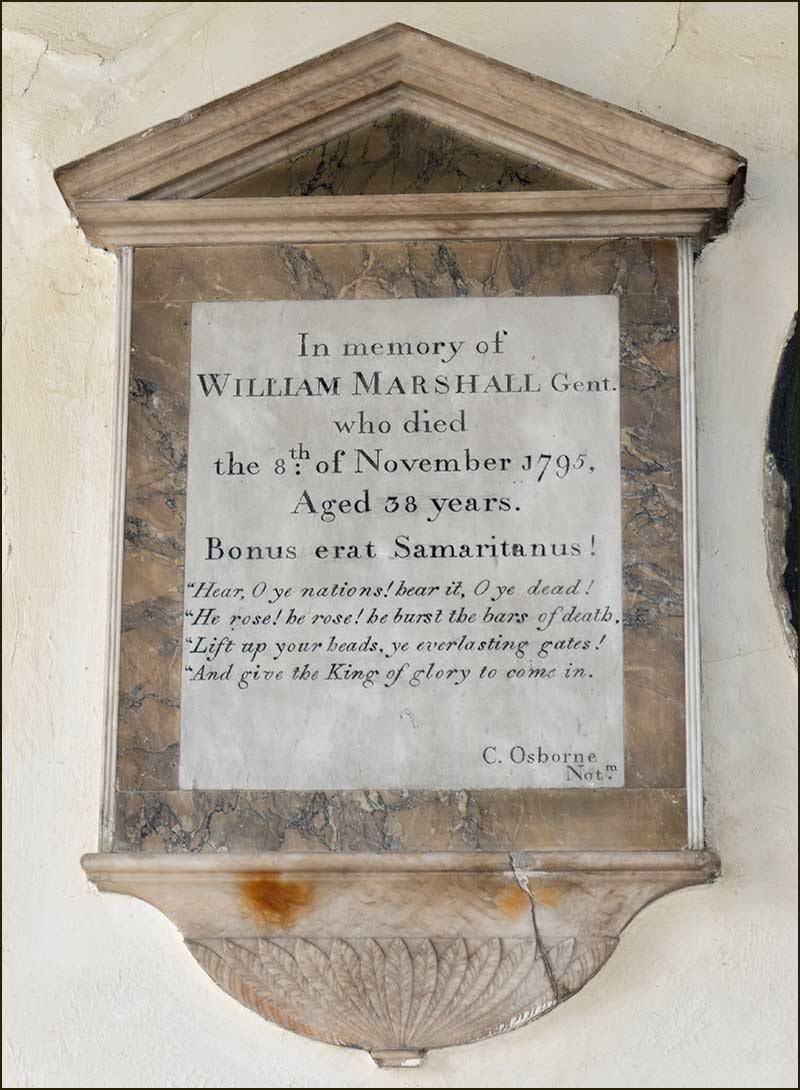 In memory of
WILLIAM MARSHALL Gent.
who died
the 8th. of November 1795,
Aged 38 years.
Bonus erat Samaritanus!
"Hear, O ye nations! hear it, O ye dead!
"He rose! he rose! he burst the bars of death,
"Lift up your heads, ye everlasting gates!
"And give the King of glory to come in.
C. Osborne
Notm.